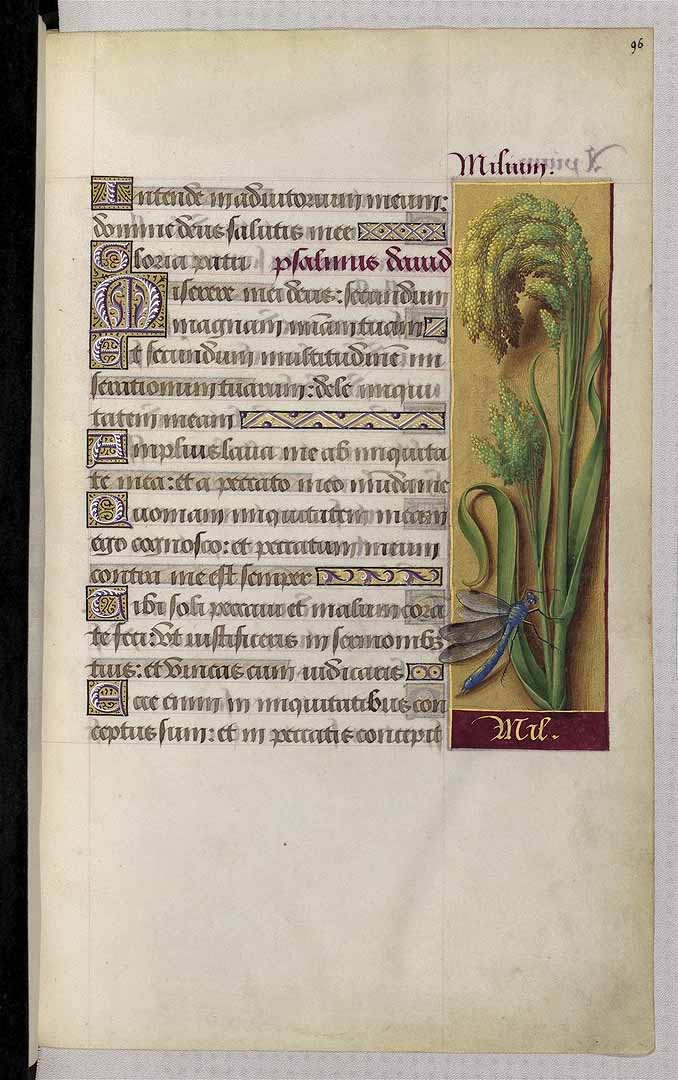 96
Milium.
Intende in adiutorium meum:
domine deus salutis mee
Gloria patri psalmus david
Miserere mei deus: secundum
magnam miam tuam
Et secundum multitudine mi
serationum tuarum: dele iniqui
tatem meam
Amplius laua me ab iniquita
te mea: et a peccato meo mundame
Quoniam iniquitatem meam
ego cognosco: et peccatum meum
contra me est semper
Tibi soli peccaui et malum cora
te feci: Vt iustificeris in sermonibz
tuis: et vincas cum iudicaris
Ecce enim in iniquitatibus con
ceptus sum: et in peccatis concepit
Mil.